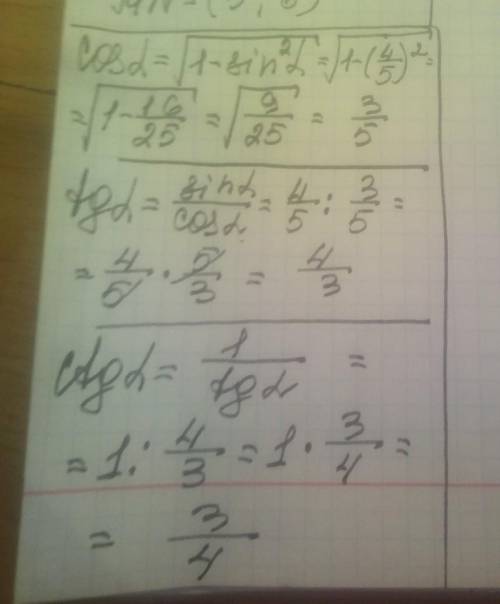 cosα = √(1-sin²α) = √(1-(4/5)²) =
= √(1-16/25) = √(9/25) = 3/5
tgα = sinα/cosα = 4/5 : 3/5 =
= 4/5 · 5/3 = 4/3
ctgα = 1/tgα =
= 1 : 4/3 = 1 · 3/4 =
= 3/4